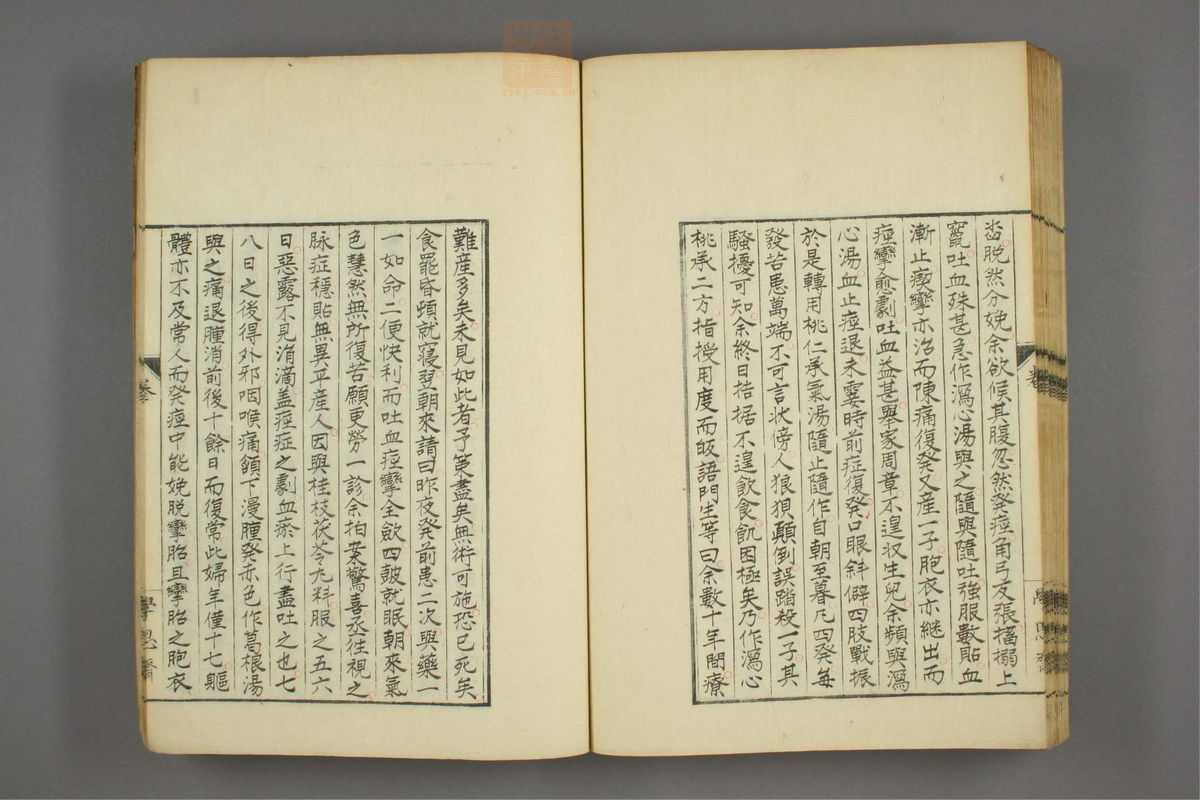 沓脫然分娩余欲候其腹忽然發痙角弓反張搐搦上
竄吐血殊甚急作瀉心湯與之隨與隨吐強服數貼血
漸止瘈攣亦治而陳痛復發又產一子胞衣亦繼出而
痙攣愈劇吐血益甚舉家周章不遑収生兒余頻與瀉
心湯血止痙退未霎時前症復發口眼斜僻四肢戰振
於是轉用桃仁承氣湯隨止隨作自朝至暮凡四發每
發苦患萬端不可言狀傍人狼狽顛倒誤踏殺一子其
騷擾可知余終日拮据不遑飲食飢困極矣乃作瀉心
桃承二方指授用度而皈語門生等曰余數十年間療
難產多矣未見如此者予策盡矣無術可施恐已死矣
食罷昏頓就寢翌朝來請曰昨夜發前患二次與藥一
一如命二便快利而吐血痙攣全歛四鼓就眠朝來氣
色慧然無所復苦願更勞一診余拍案驚喜丞往視之
脉症穩貼無異平產人因與桂枝茯苓丸料服之五六
日惡露不見涓滴盖痙症之劇血瘀上行盡吐之也七
八日之後得外邪咽喉痛頷下漫腫發赤色作葛根湯
與之痛退腫消前後十餘日而復常此婦年僅十七軀
體亦不及常人而發痙中能娩脫攣胎且攣胎之胞衣
卷
學思齋
zysj.com.cn